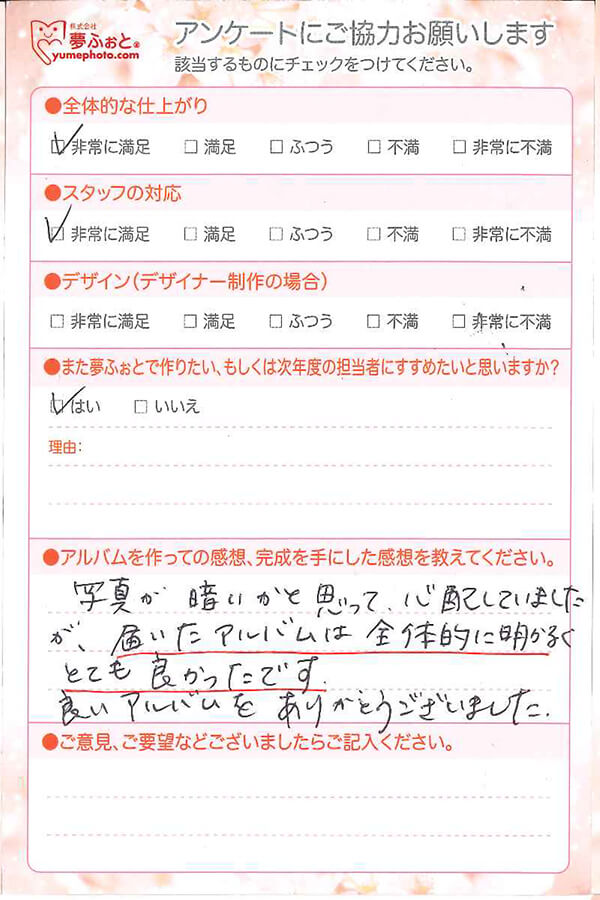 株式会社
夢ふぉと®
yumephoto.com
アンケートにご協力お願いします
該当するものにチェックをつけてください。
●全体的な仕上がり
☑ 非常に満足 □ 満足 □ ふつう □ 不満 □ 非常に不満
●スタッフの対応
☑ 非常に満足 □ 満足 □ ふつう □ 不満 □ 非常に不満
●デザイン(デザイナー制作の場合)
□ 非常に満足 □ 満足 □ ふつう □ 不満 □ 非常に不満
●また夢ふぉとで作りたい、もしくは次年度の担当者にすすめたいと思いますか?
☑ はい □ いいえ
理由:
●アルバムを作っての感想、完成を手にした感想を教えてください。
写真が暗いかと思って、心配していました
が、届いたアルバムは全体的に明かるく
とても良かったです。
良いアルバムをありがとうございました.
●ご意見、ご要望などございましたらご記入ください。